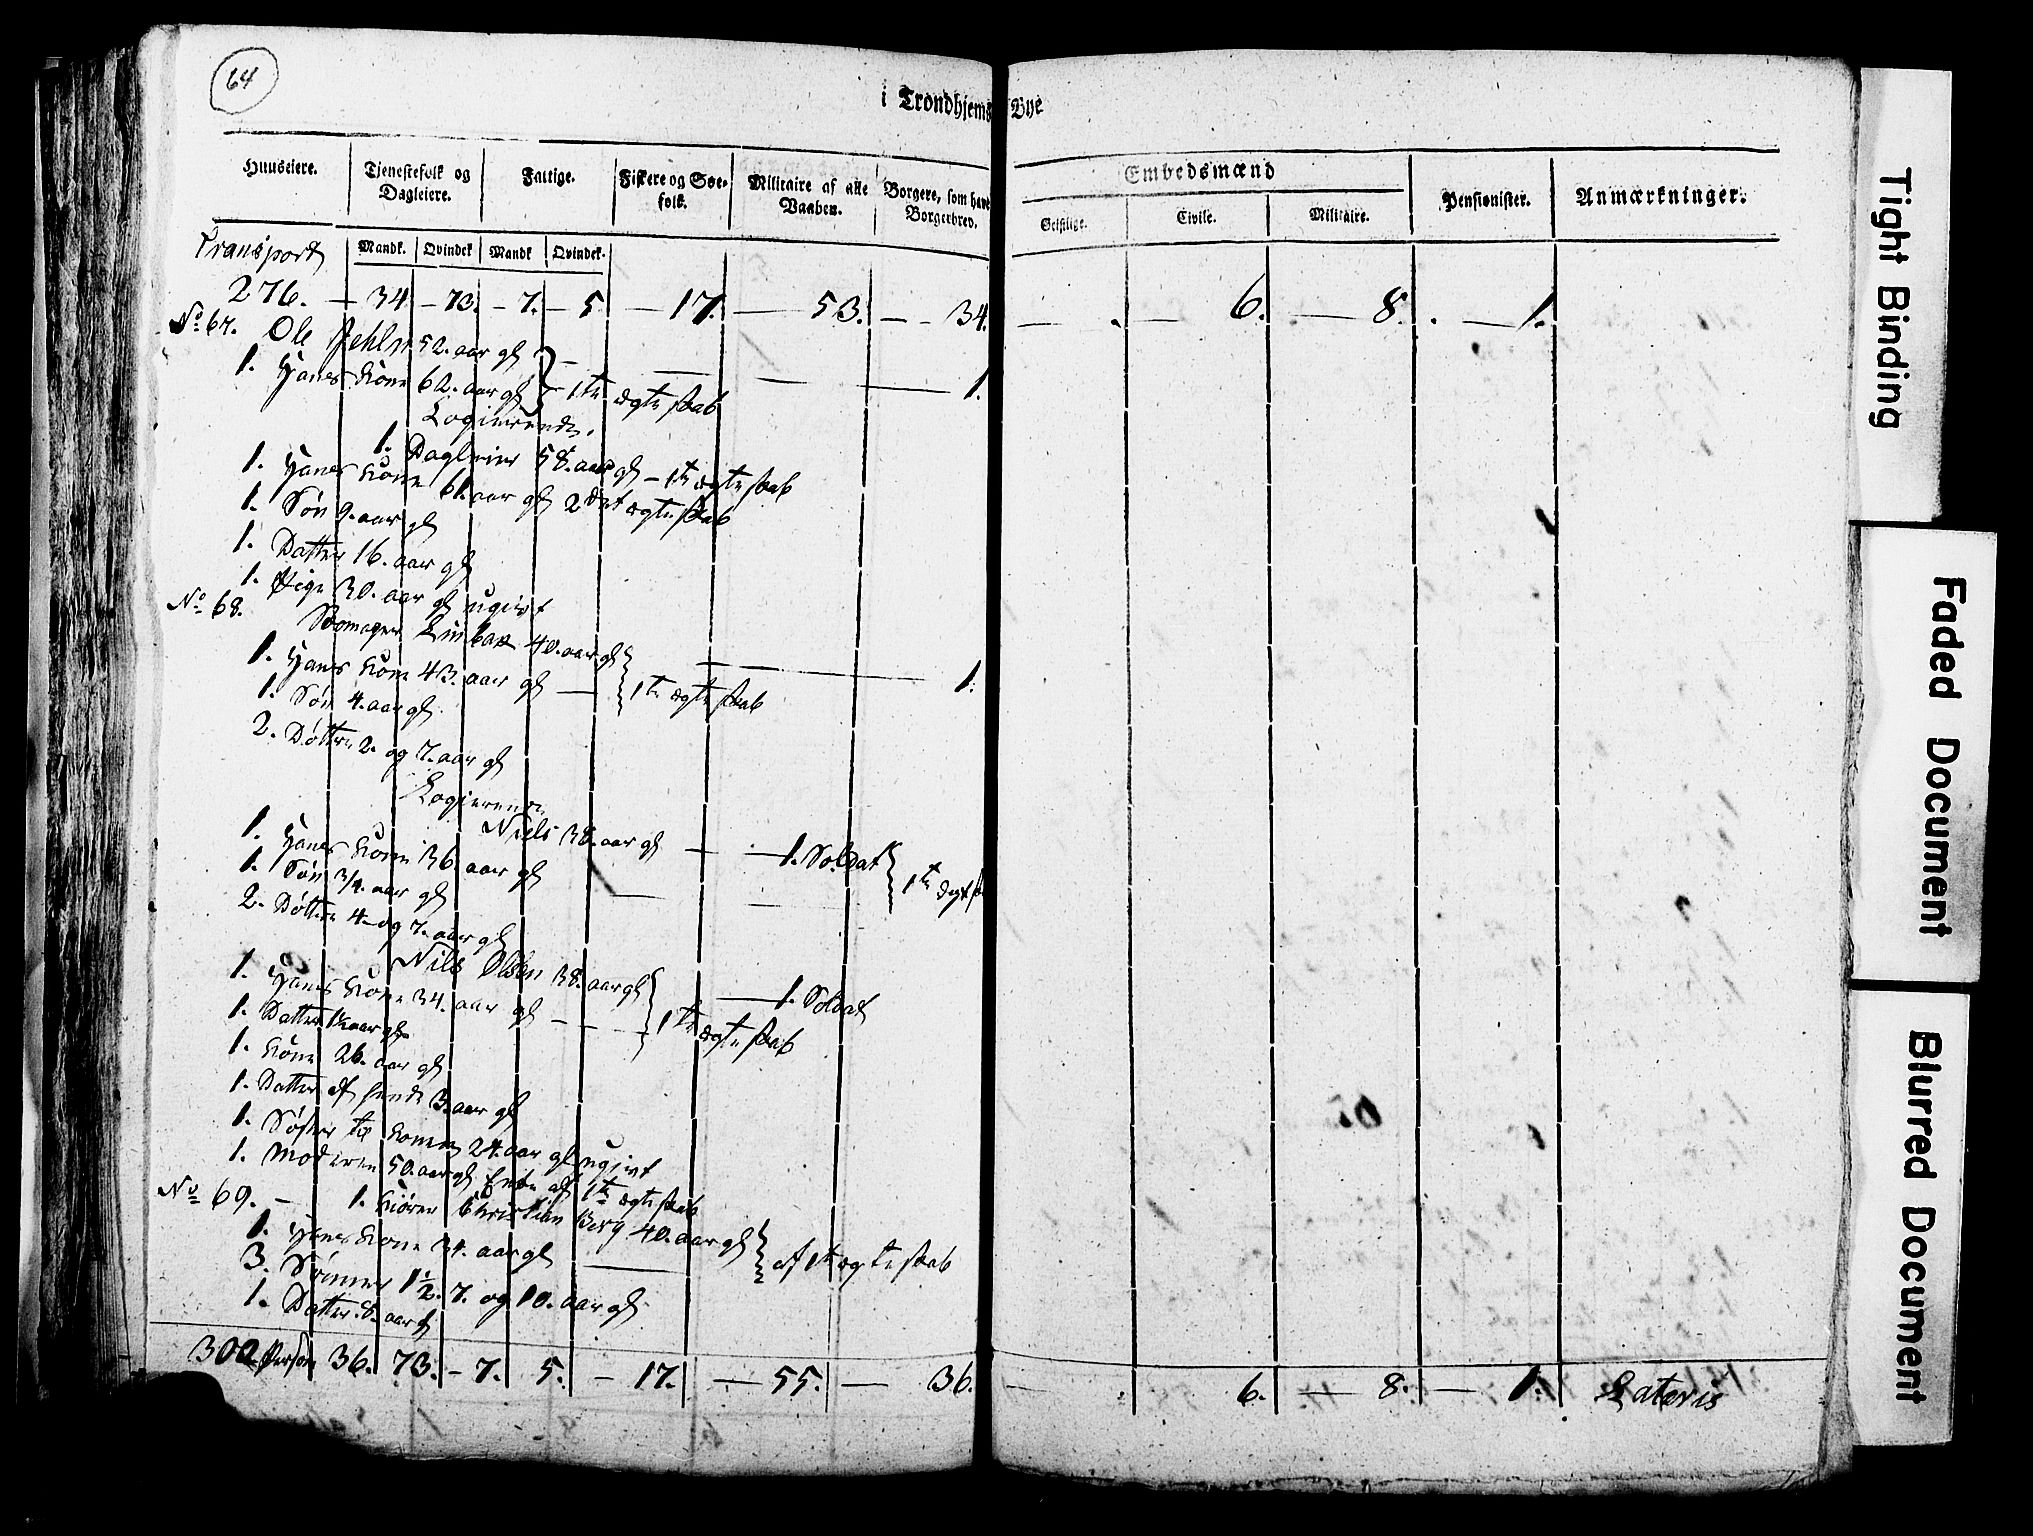 64
i Trondhjems Bye
Huuseiere. Tjenestefolk og Dagleiere. Fattige. Fiskere og Søefolk. Militaire af alle Vaaben. Borgere, som have Borgerbrev. Embedsmænd Pensionister. Anmærkninger.
Mandk. Qvindek Mandk Qvindek. Geistlige. Civile. Militaire.
Transport
276. — 34 — 73. — 7. — 5 — 17. — 53. — 34. — . — 6. — 8. . — 1.
No 67. Ole 52. aar gl
1. Hanes Kone 62. aar gl 1te ægteskab — 1.
Logierende.
1. Dagleier 58. aar gl — 1te ægteskab
1. Hanes Kone 61. aar gl 2det ægteskab
1. Søn 9. aar gl
1. Datter 16. aar gl
1. Pige 30. aar gl ugivt
No 68. Skomager 40. aar gl — 1.
1. Hanes Kone 43. aar gl — 1te ægteskab
1. Søn 4. aar gl
2. Døttre 2. og 7. aar gl
Logierende
Niels 38. aar gl — 1. Soldat
1. Hanes Kone 36. aar gl — 1te
1. Søn 3/4. aar gl
2. Døttre 4. og 7. aar gl
Nils Olsen 38. aar gl — 1. Soldat
1. Hanes Kone 34. aar gl — 1te ægteskab
1. Datter aar gl
1. Kone 26. aar gl
1. Datter af hende 3. aar gl
1. Søster til Konen 24. aar gl ugivt
1. Moderen 50. aar gl Enke af 1te ægteskab
No 69. — 1. Kiører Christian Berg 40. aar gl
1. Hanes Kone 34. aar gl — af 1te ægteskab
3. Sønner 1 1/2. 7. og 10. aar gl
1. Datter 8. aar gl
302 Person 36. 73. — 7. 5. — 17. — 55. — 36. — . 6. — 8. — 1. Lateris
Tight Binding
Faded Document
Blurred Document